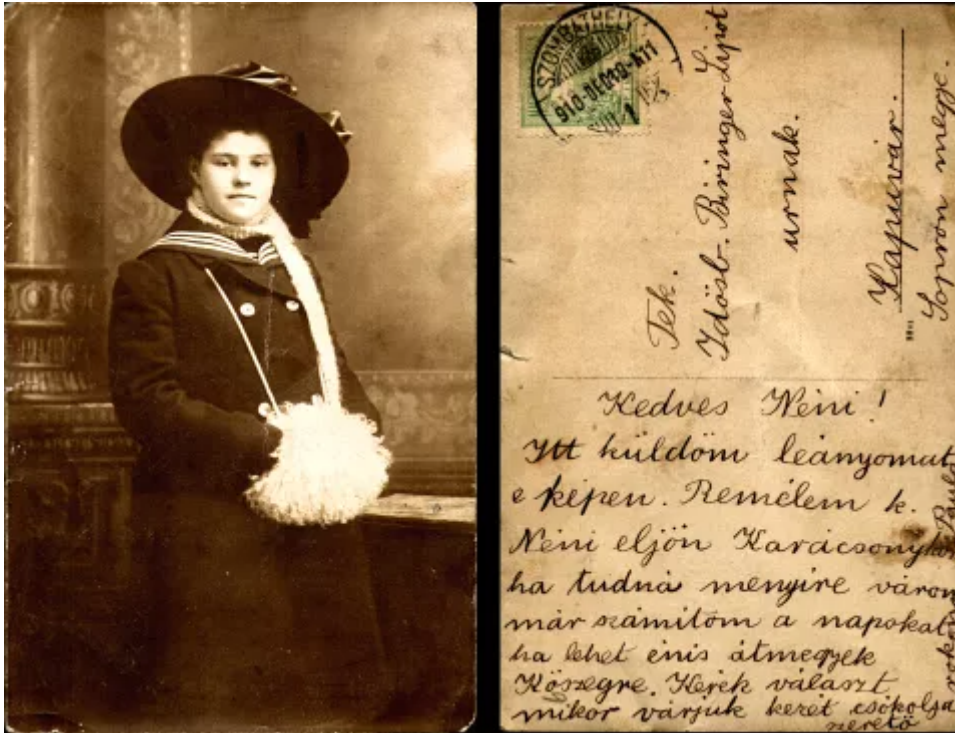 SZOMBATHELY
910 DEC 19
1
Tek.
Idősb. Biringer Lipót
urnak.
Kapuvár.
Sopron megye.
Kedves Néni!
Itt küldöm leányomat
e képen. Remélem k.
Néni eljön Karácsonykor
ha tudná menyire várom
már számitom a napokat
ha lehet énis átmegyek
Kőszegre. Kérek választ
mikor várjuk kezét csókolja
szerető
rokona